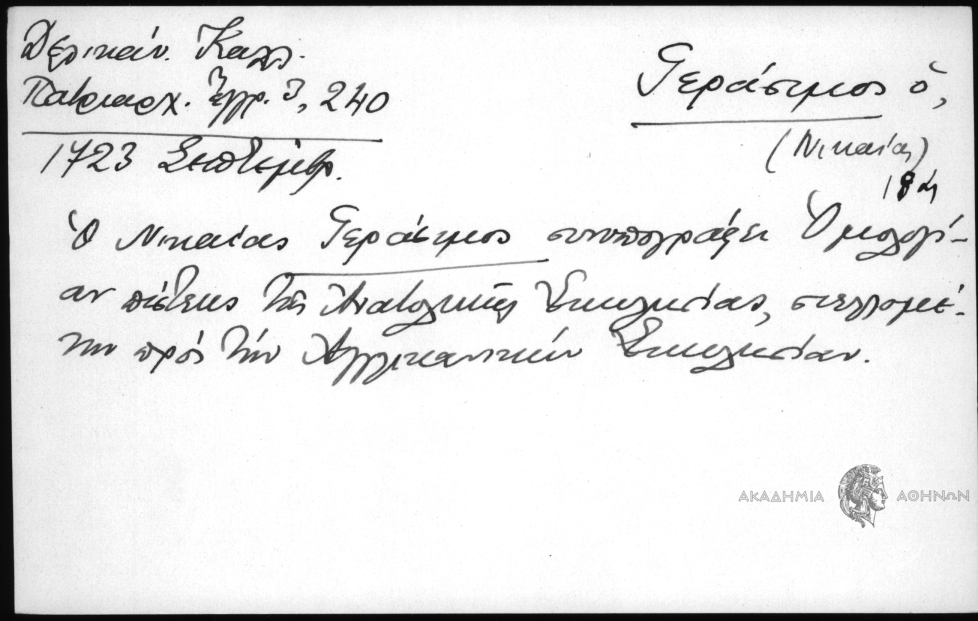 Δελικάν. Καλλ.
Πατριαρχ. Ἔγγρ. 3, 240
1723 Σεπτέμβρ.
Γεράσιμος ὁ,
(Νικαίας)
Ὁ Νικαίας Γεράσιμος συνυπογράφει Ὁμολογί-
αν πίστεως τῆς Ἀνατολικῆς Ἐκκλησίας, στελλομέ-
νην πρός τήν Ἀγγλικανικήν Ἐκκλησίαν.
ΑΚΑΔΗΜΙΑ ΑΘΗΝΩΝ